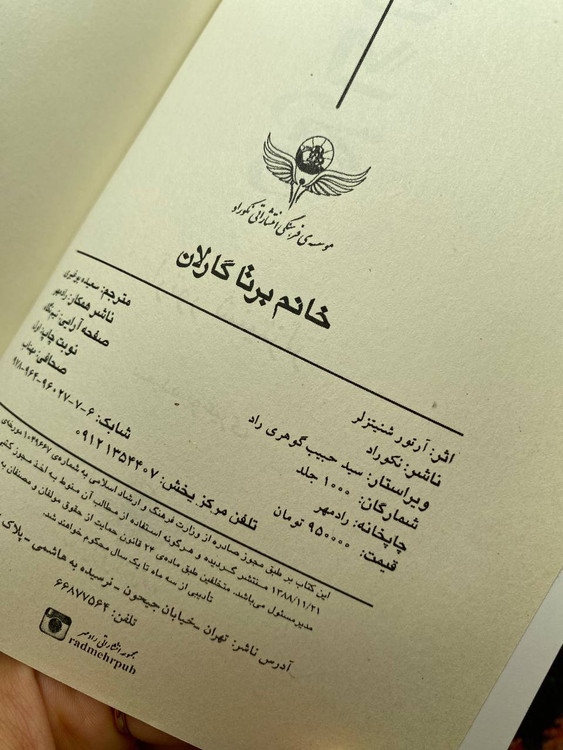 موسسه‌ی فرهنگی انتشاراتی نکوراد
خانم برتا گارلان
اثر: آرتور شنیتزلر
مترجم: سعیده بوغیری
ناشر: نکوراد
ناشر همکار: رادمهر
ویراستار: سید حبیب گوهری راد
صفحه آرایی:
شمارگان: ۱۰۰۰ جلد
نوبت چاپ: اول
چاپخانه: رادمهر
صحافی: مهتاب
قیمت: ۹۵۰۰۰۰ تومان
شابک: ۶-۷-۹۶۰۲۷-۹۶۴-۹۷۸
تلفن مرکز پخش: ۰۹۱۲۱۳۵۴۴۰۷
این کتاب بر طبق مجوز صادره از وزارت فرهنگ و ارشاد اسلامی به شماره‌ی ۱۰۴۹۶۶۷ مورخه‌ی
۱۳۸۸/۱۱/۲۱ منتشر گردیده و هرگونه استفاده از مطالب آن منوط به اخذ مجوز کتبی
مدیرمسئول می‌باشد. متخلفین طبق ماده‌ی ۲۳ قانون حمایت از حقوق مولفان و مصنفان به
تأدیبی از سه ماه تا یک سال محکوم خواهند شد.
آدرس ناشر: تهران -خیابان جیحون - نرسیده به هاشمی -پلاک
تلفن: ۶۶۸۷۷۵۶۴
radmehrpub